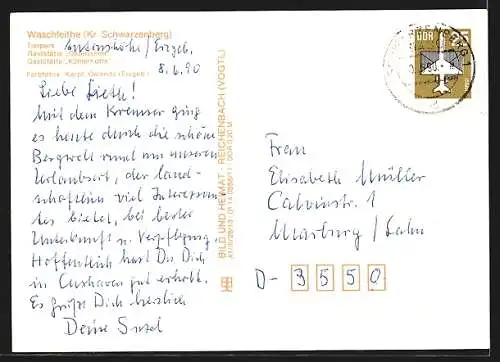 Waschleithe (Kr. Schwarzenberg)
Tierpark
Gaststätte
Gaststätte „Köhlerhütte“
Farbfotos: Kerpf, Oelsnitz (Erzgeb.)
Antonshöhe / Erzgeb.
8.6.90
Liebe Liseth!
Mit dem Kremser ging
es heute durch die schöne
Bergwelt rund um unseren
Urlaubsort, der land-
schaftlich viel Interessan-
tes bietet, bei bester
Unterkunft u. Verpflegung.
Hoffentlich hast Du Dich
in Cuxhaven gut erholt.
Es grüßt Dich herzlich
Deine Susel
BILD UND HEIMAT REICHENBACH (VOGTL)
DDR
Frau
Elisabeth Müller
Calvinstr. 1
Marburg / Lahn
D- 3550